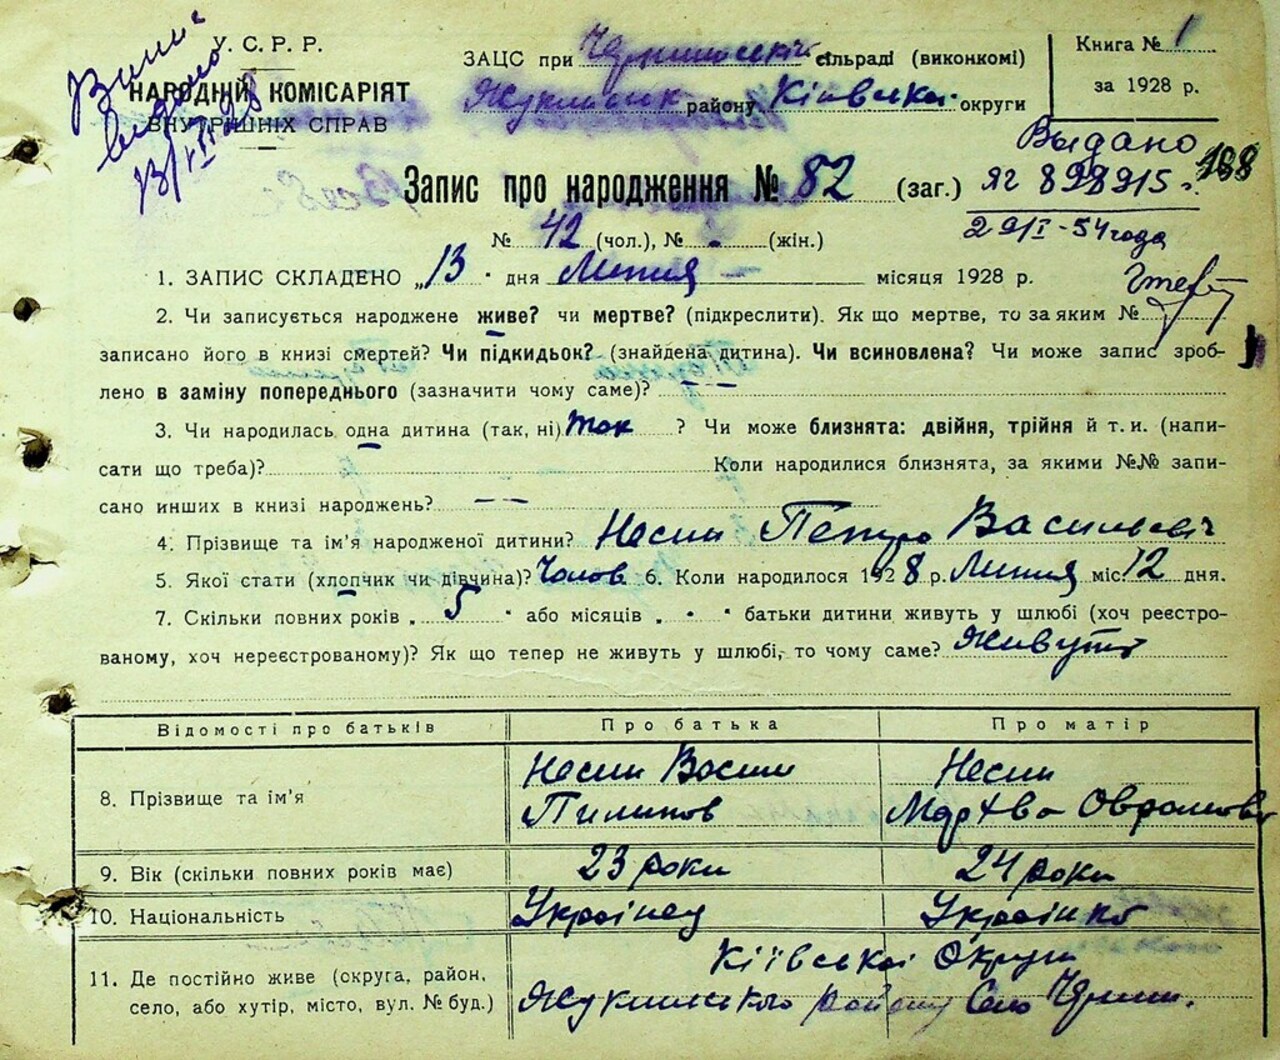 У. С. Р. Р.
НАРОДНІЙ КОМІСАРІЯТ
ВНУТРІШНІХ СПРАВ
ЗАЦС при сільраді (виконкомі)
району Київської округи
Книга № 1
за 1928 р.
Выдано
ЯГ 898915
29/I-54 года
168
Запис про народження № 82 (заг.)
№ 42 (чол.), № (жін.)
1. ЗАПИС СКЛАДЕНО „13" дня Липня місяця 1928 р.
2. Чи записується народжене живе? чи мертве? (підкреслити). Як що мертве, то за яким №
записано його в книзі смертей? Чи підкидьок? (знайдена дитина). Чи всиновлена? Чи може запис зроб-
лено в заміну попереднього (зазначити чому саме)? — —
3. Чи народилась одна дитина (так, ні) так ? Чи може близнята: двійня, трійня й т. и. (напи-
сати що треба)? Коли народилися близнята, за якими №№ запи-
сано инших в книзі народжень? — —
4. Прізвище та ім'я народженої дитини? Несин Петро Васильевіч
5. Якої стати (хлопчик чи дівчина)? Чолов 6. Коли народилося 1928 р. Липня міс. 12 дня.
7. Скільки повних років „ 5 " або місяців „ - " батьки дитини живуть у шлюбі (хоч реєстро-
ваному, хоч нереєстрованому)? Як що тепер не живуть у шлюбі, то чому саме? Живуть
Відомості про батьків Про батька Про матір
8. Прізвище та ім'я
Несин Васил
Пилипов
Несин
Мархва Оврамова
9. Вік (скільки повних років має) 23 роки 24 роки
10. Національність Українец Українка
11. Де постійно живе (округа, район,
село, або хутір, місто, вул. № буд.)
Київської Округи
району Село